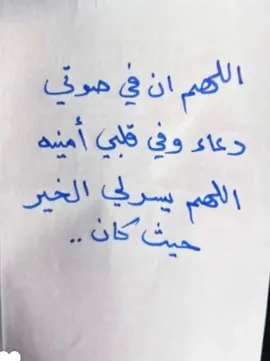 اللهم ان في صوتي
دعاء وفي قلبي أمنيه
اللهم يسرلي الخير
حيث كان ..